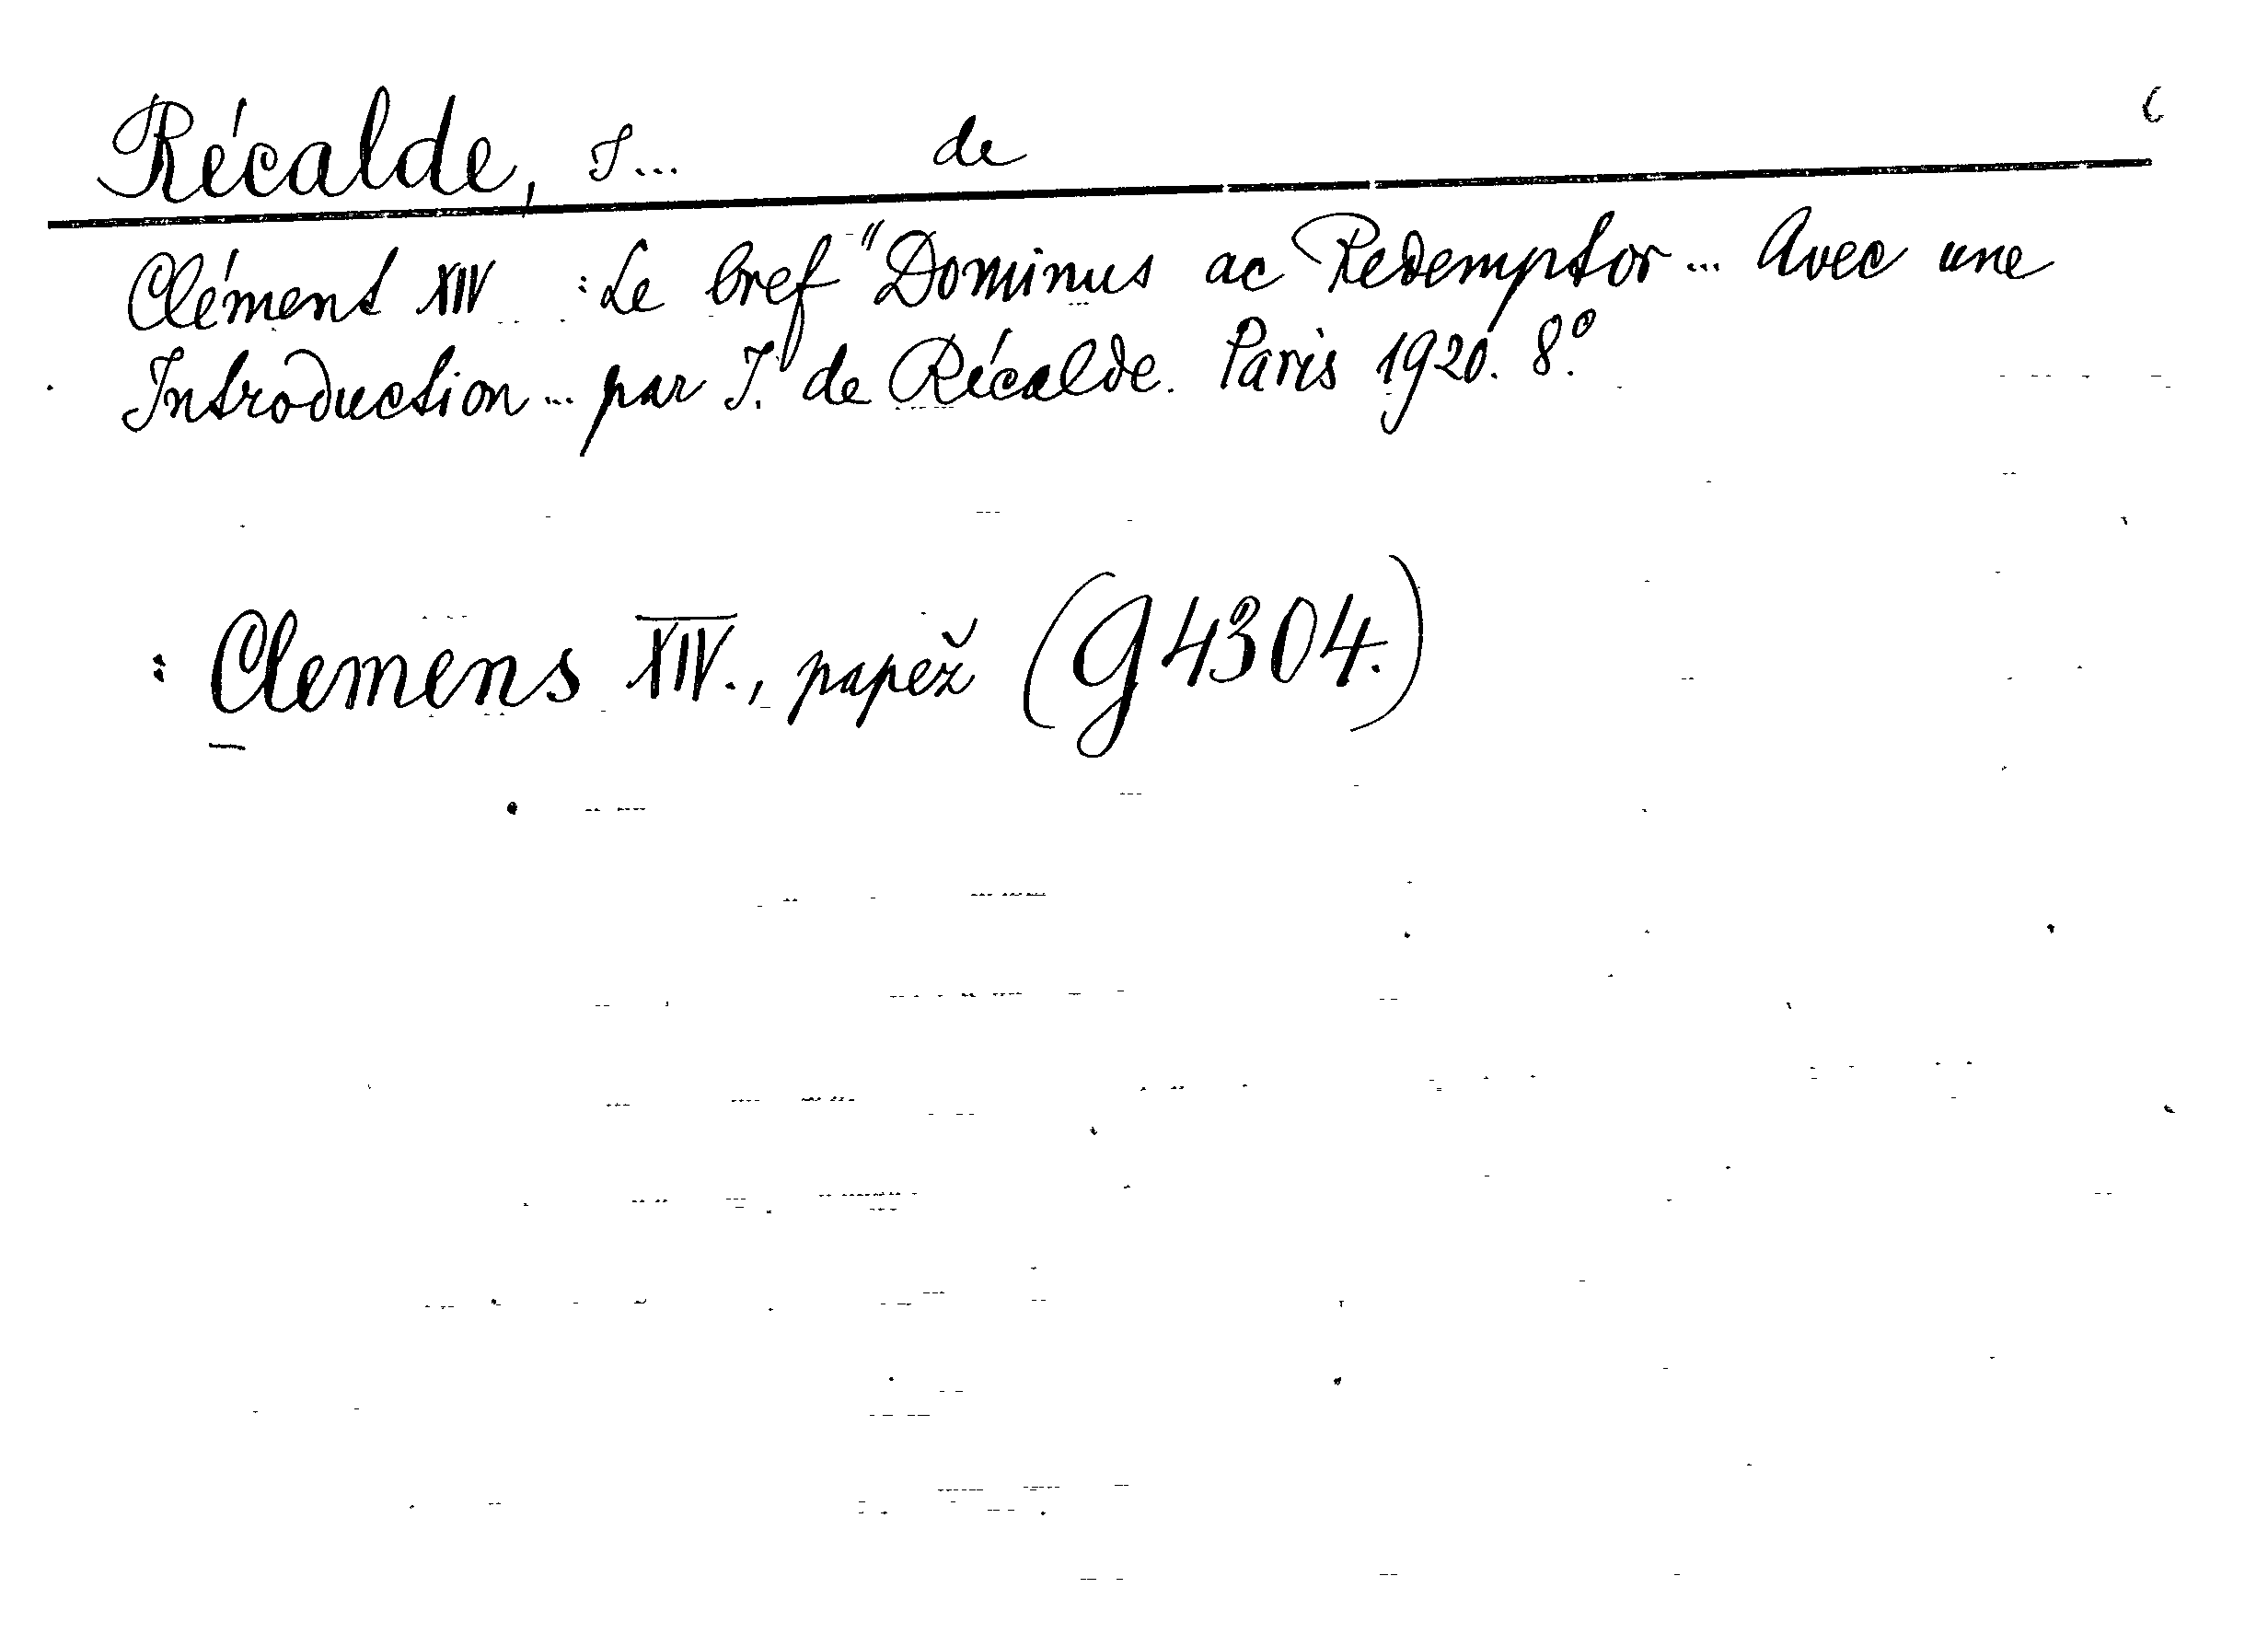 Récalde, I... de
Clément XIV : Le bref "Dominus ac Redemptor... Avec une
Introduction... par I. de Récalde. Paris 1920. 8°.
: Clemens XIV., papež (G 4304.)